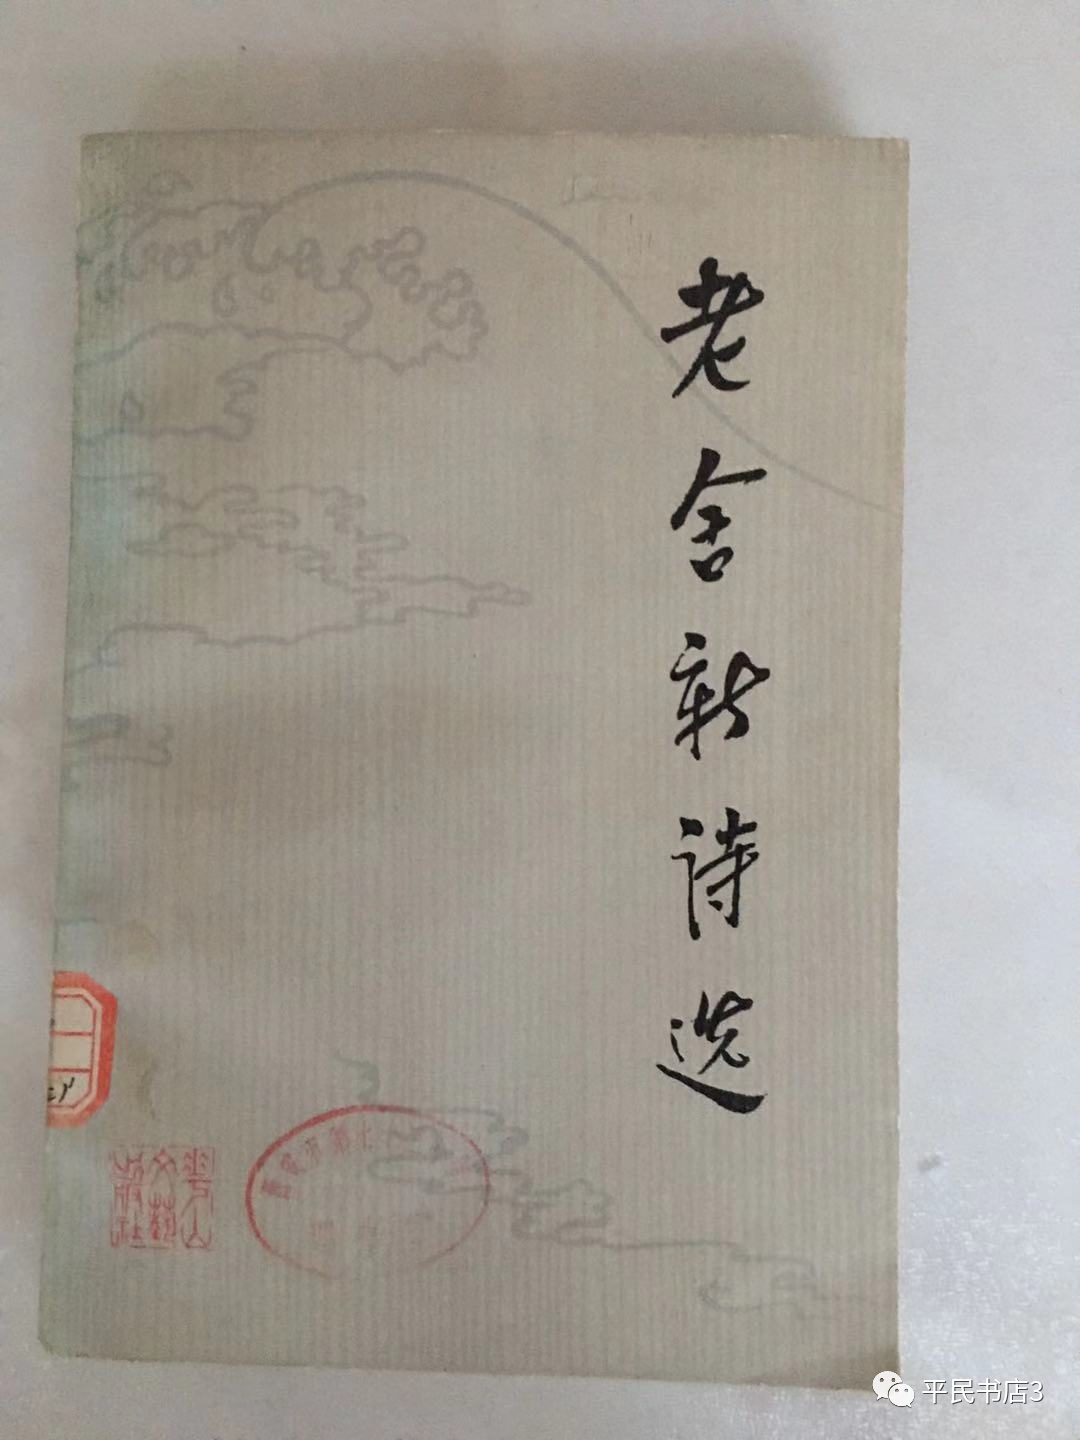 老舍新诗选
花山
文艺
出版社
平民书店3